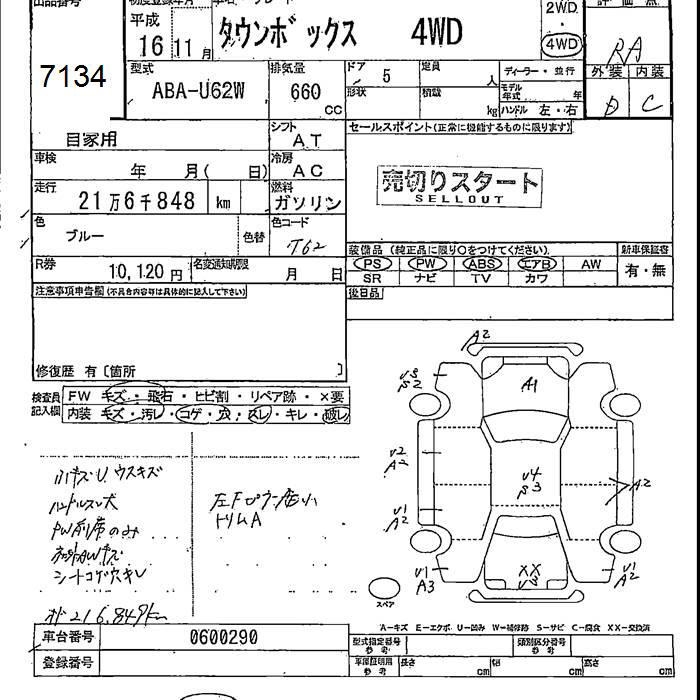 出品番号
7134
平成 16 11月
タウンボックス 4WD
2WD
・
4WD
RA
型式
ABA-U62W
排気量
660 CC
ドア 5
定員 人
形状
積載 kg
ディーラー・並行
モデル年式 年
ハンドル 左・右
外装 内装
D C
自家用
シフト AT
セールスポイント(正常に機能するものに限ります)
車検 年 月( 日)
冷房 AC
走行 21万6千848 km
燃料 ガソリン
売切りスタート
SELLOUT
色
ブルー
色替
色コード
T62
R券 10,120円
名変通知期限 月 日
装備品 (純正品に限り○をつけてください)
新車保証書
PS PW ABS エアB AW
有・無
SR ナビ TV カワ
注意事項申告欄(不具合内容等は具体的に記入して下さい)
後日品
修復歴 有〔箇所 〕
検査員記入欄
FW キズ・飛石・ヒビ割・リペア跡・×要
内装 キズ・汚レ・コゲ・穴・スレ・キレ・破レ
A2
A1
A2
V2
A2
V4
A2
V1
A2
V1
A3
XX
V1
A2
ウスキズ
ハンドルスレ大
PW前席のみ
シートコゲ穴キレ
トリムA
216,849km
スペア
A-キズ E-エクボ U-凹み W-補修跡 S-サビ C-腐食 XX-交換済
車台番号 0600290
型式指定番号 参考
類別区分番号 参考
登録番号
車庫証明用 参考
長さ cm
幅 cm
高さ cm